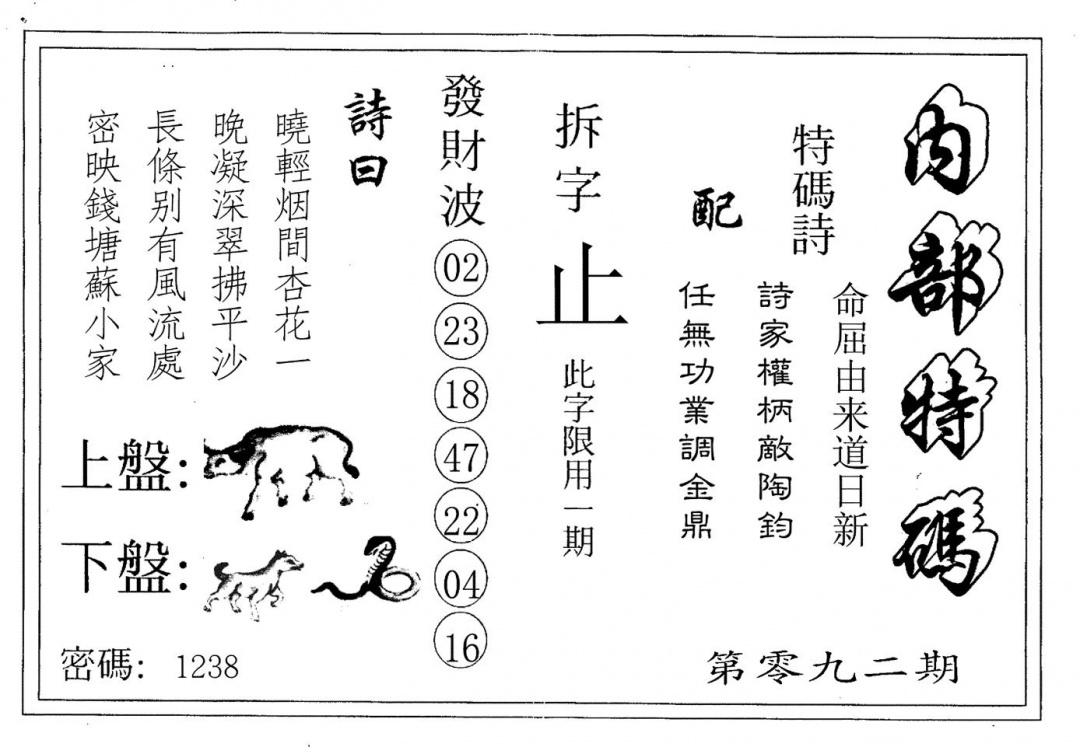 内部特碼
第零九二期
特碼詩
命屈由来道日新
詩家權柄敵陶鈞
配
任無功業調金鼎
拆字
止
此字限用一期
發財波
02
23
18
47
22
04
16
詩曰
曉輕烟間杏花一
晚凝深翠拂平沙
長條別有風流處
密映錢塘蘇小家
上盤:
下盤:
密碼: 1238